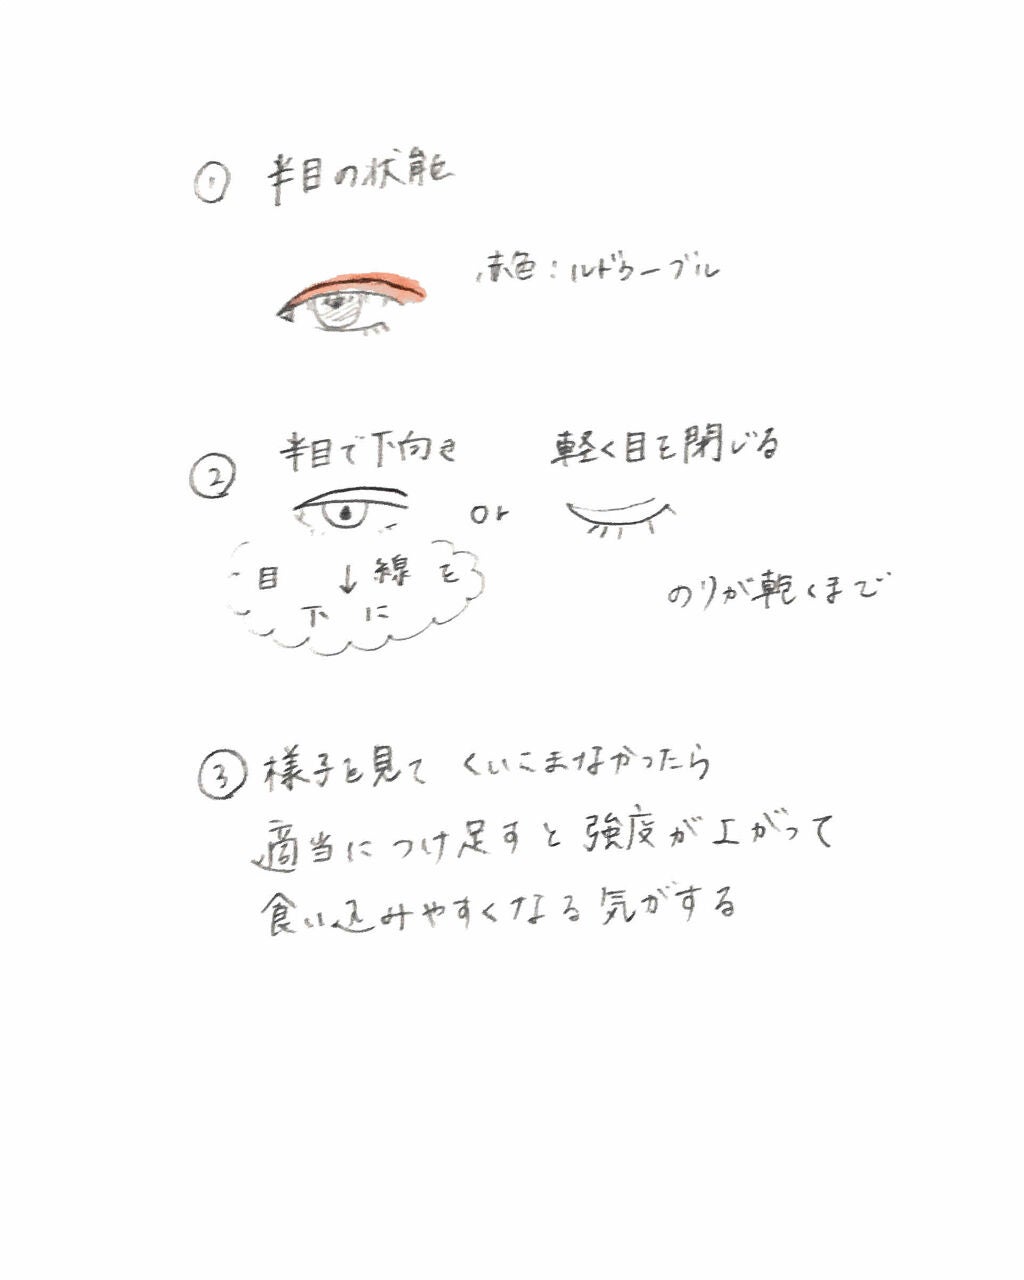 ① 半目の状態
赤色：ルドゥーブル
② 半目で下向き
軽く目を閉じる
or
目↓線を
下に
のりが乾くまで
③ 様子を見て くいこまなかったら
適当につけ足すと強度が上がって
食い込みやすくなる気がする